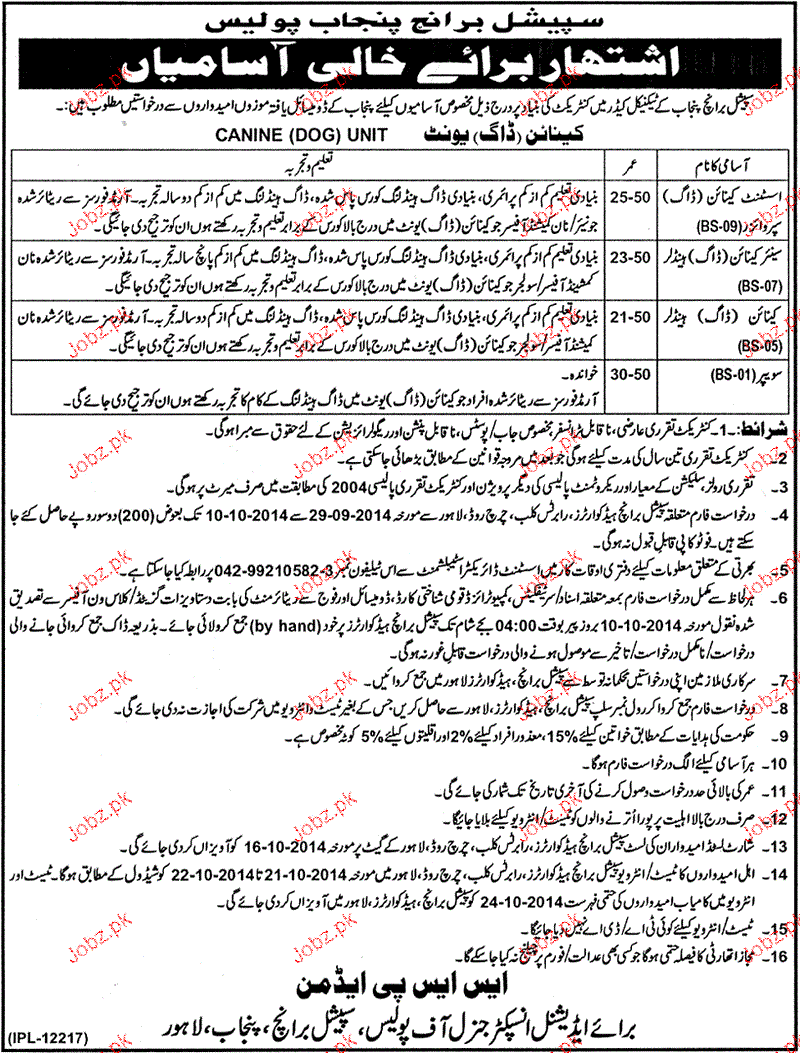 سپیشل برانچ پنجاب پولیس
اشتہار برائے خالی آسامیاں
سپیشل برانچ پنجاب کے ٹیکنیکل کیڈر میں کنٹریکٹ کی بنیاد پر درج ذیل مخصوص آسامیوں کیلئے پنجاب کے ڈومیسائل یافتہ موزوں امیدواروں سے درخواستیں مطلوب ہیں:۔
کینائن (ڈاگ) یونٹ CANINE (DOG) UNIT
آسامی کا نام عمر تعلیم و تجربہ
اسسٹنٹ کینائن (ڈاگ) 25-50 بنیادی تعلیم کم از کم پرائمری، بنیادی ڈاگ ہینڈلنگ کورس پاس شدہ، ڈاگ ہینڈلنگ میں کم از کم دو سالہ تجربہ۔ آرمڈ فورسز سے ریٹائر شدہ
سپروائزر (BS-09) جونیئر/نان کمیشنڈ آفیسر جو کینائن (ڈاگ) یونٹ میں درج بالا کورس کے برابر تعلیم و تجربہ رکھتے ہوں ان کو ترجیح دی جائیگی۔
سینئر کینائن (ڈاگ) ہینڈلر 23-50 بنیادی تعلیم کم از کم پرائمری، بنیادی ڈاگ ہینڈلنگ کورس پاس شدہ، ڈاگ ہینڈلنگ میں کم از کم پانچ سالہ تجربہ۔ آرمڈ فورسز سے ریٹائر شدہ نان
(BS-07) کمیشنڈ آفیسر/سولجر جو کینائن (ڈاگ) یونٹ میں درج بالا کورس کے برابر تعلیم و تجربہ رکھتے ہوں ان کو ترجیح دی جائیگی۔
کینائن (ڈاگ) ہینڈلر 21-50 بنیادی تعلیم کم از کم پرائمری، بنیادی ڈاگ ہینڈلنگ کورس پاس شدہ، ڈاگ ہینڈلنگ میں کم از کم دو سالہ تجربہ۔ آرمڈ فورسز سے ریٹائر شدہ نان
(BS-05) کمیشنڈ آفیسر/سولجر جو کینائن (ڈاگ) یونٹ میں درج بالا کورس کے برابر تعلیم و تجربہ رکھتے ہوں ان کو ترجیح دی جائیگی۔
سویپر (BS-01) 30-50 خواندہ۔
آرمڈ فورسز سے ریٹائر شدہ افراد جو کینائن (ڈاگ) یونٹ میں ڈاگ ہینڈلنگ کے کام کا تجربہ رکھتے ہوں ان کو ترجیح دی جائے گی۔
شرائط:۔ 1۔ کنٹریکٹ تقرری عارضی، ناقابل ٹرانسفر، مخصوص جاب/پوسٹس، ناقابل پنشن اور ریگولرائزیشن کے لئے حقوق سے مبرا ہوگی۔
2۔ کنٹریکٹ تقرری تین سال کی مدت کیلئے ہوگی جو بعد میں مروجہ قوانین کے مطابق بڑھائی جاسکتی ہے۔
3۔ تقرری رولز، سلیکشن کے معیار اور ریکروٹمنٹ پالیسی کی دیگر پرویژن اور کنٹریکٹ تقرری پالیسی 2004 کی مطابقت میں صرف میرٹ پر ہوگی۔
4۔ درخواست فارم متعلقہ سپیشل برانچ ہیڈکوارٹرز، رابرٹس کلب، چرچ روڈ، لاہور سے مورخہ 29-09-2014 سے 10-10-2014 تک بعوض (200) دو سو روپے حاصل کئے جا
سکتے ہیں۔ فوٹو کاپی قابل قبول نہ ہوگی۔
5۔ بھرتی کے متعلق معلومات کیلئے دفتری اوقات کار میں اسسٹنٹ ڈائریکٹر اسٹیبلشمنٹ سے اس ٹیلیفون نمبر 3-042-99210582 پر رابطہ کیا جاسکتا ہے۔
6۔ ہر لحاظ سے مکمل درخواست فارم بمعہ متعلقہ اسناد/سرٹیفکیٹس، کمپیوٹرائزڈ قومی شناختی کارڈ، ڈومیسائل اور فوج سے ریٹائرمنٹ کی بابت دستاویزات گزیٹڈ/کلاس ون آفیسر سے تصدیق
شدہ نقول مورخہ 10-10-2014 بروز پیر بوقت 04:00 بجے شام تک سپیشل برانچ ہیڈکوارٹرز پر خود (by hand) جمع کرولائی جائے۔ بذریعہ ڈاک جمع کروائی جانے والی
درخواست/نامکمل درخواست/تاخیر سے موصول ہونے والی درخواست قابل غور نہ ہوگی۔
7۔ سرکاری ملازمین اپنی درخواستیں محکمانہ توسط سے سپیشل برانچ، ہیڈکوارٹرز لاہور میں جمع کروائیں۔
8۔ درخواست فارم جمع کروا کر رول نمبر سلپ سپیشل برانچ، ہیڈکوارٹرز، لاہور سے حاصل کریں جس کے بغیر ٹیسٹ و انٹرویو میں شرکت کی اجازت نہ دی جائے گی۔
9۔ حکومت کی ہدایات کے مطابق خواتین کیلئے 15%، معذور افراد کیلئے 2% اور اقلیتوں کیلئے 5% کوٹہ مخصوص ہے۔
10۔ ہر آسامی کیلئے الگ درخواست فارم ہوگا۔
11۔ عمر کی بالائی حد درخواست وصول کرنے کی آخری تاریخ تک شمار کی جائے گی۔
12۔ صرف درج بالا اہلیت پر پورا اُترنے والوں کو ٹیسٹ/انٹرویو کیلئے بلایا جائیگا۔
13۔ شارٹ لسٹڈ امیدواران کی لسٹ سپیشل برانچ ہیڈکوارٹرز، رابرٹس کلب، چرچ روڈ، لاہور کے گیٹ پر مورخہ 16-10-2014 کو آویزاں کر دی جائے گی۔
14۔ اہل امیدواروں کا ٹیسٹ/انٹرویو سپیشل برانچ ہیڈکوارٹرز، رابرٹس کلب، چرچ روڈ، لاہور میں مورخہ 21-10-2014 تا 22-10-2014 کو شیڈول کے مطابق ہوگا۔ ٹیسٹ اور
انٹرویو میں کامیاب امیدواروں کی حتمی فہرست 24-10-2014 کو سپیشل برانچ، ہیڈکوارٹرز، لاہور میں آویزاں کر دی جائے گی۔
15۔ ٹیسٹ/انٹرویو کیلئے کوئی ٹی اے/ڈی اے نہیں دیا جائیگا۔
16۔ مجاز اتھارٹی کا فیصلہ حتمی ہوگا جو کسی بھی عدالت/فورم پر چیلنج نہ کیا جاسکے گا۔
ایس ایس پی ایڈمن
برائے ایڈیشنل انسپکٹر جنرل آف پولیس، سپیشل برانچ، پنجاب، لاہور
(IPL-12217)